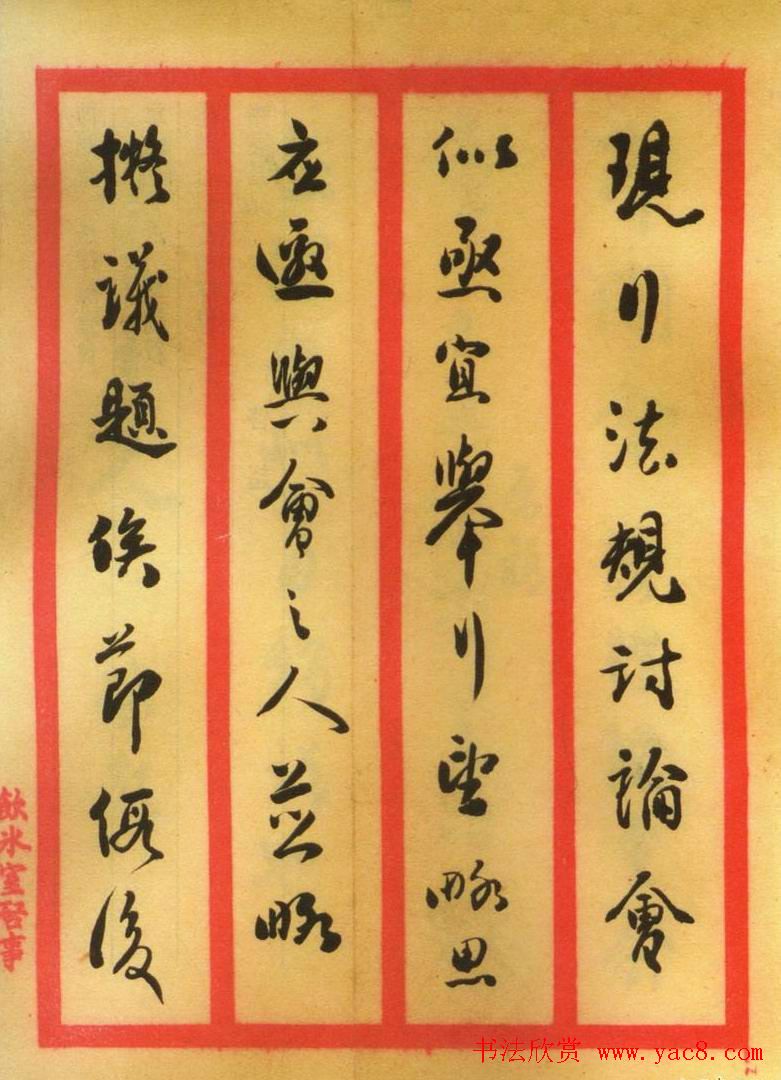 現行法規討論會
似亟宜舉行望略思
應邀與會之人并略
擬議題俟節假後
飲冰室啓事
书法欣赏 www.yac8.com